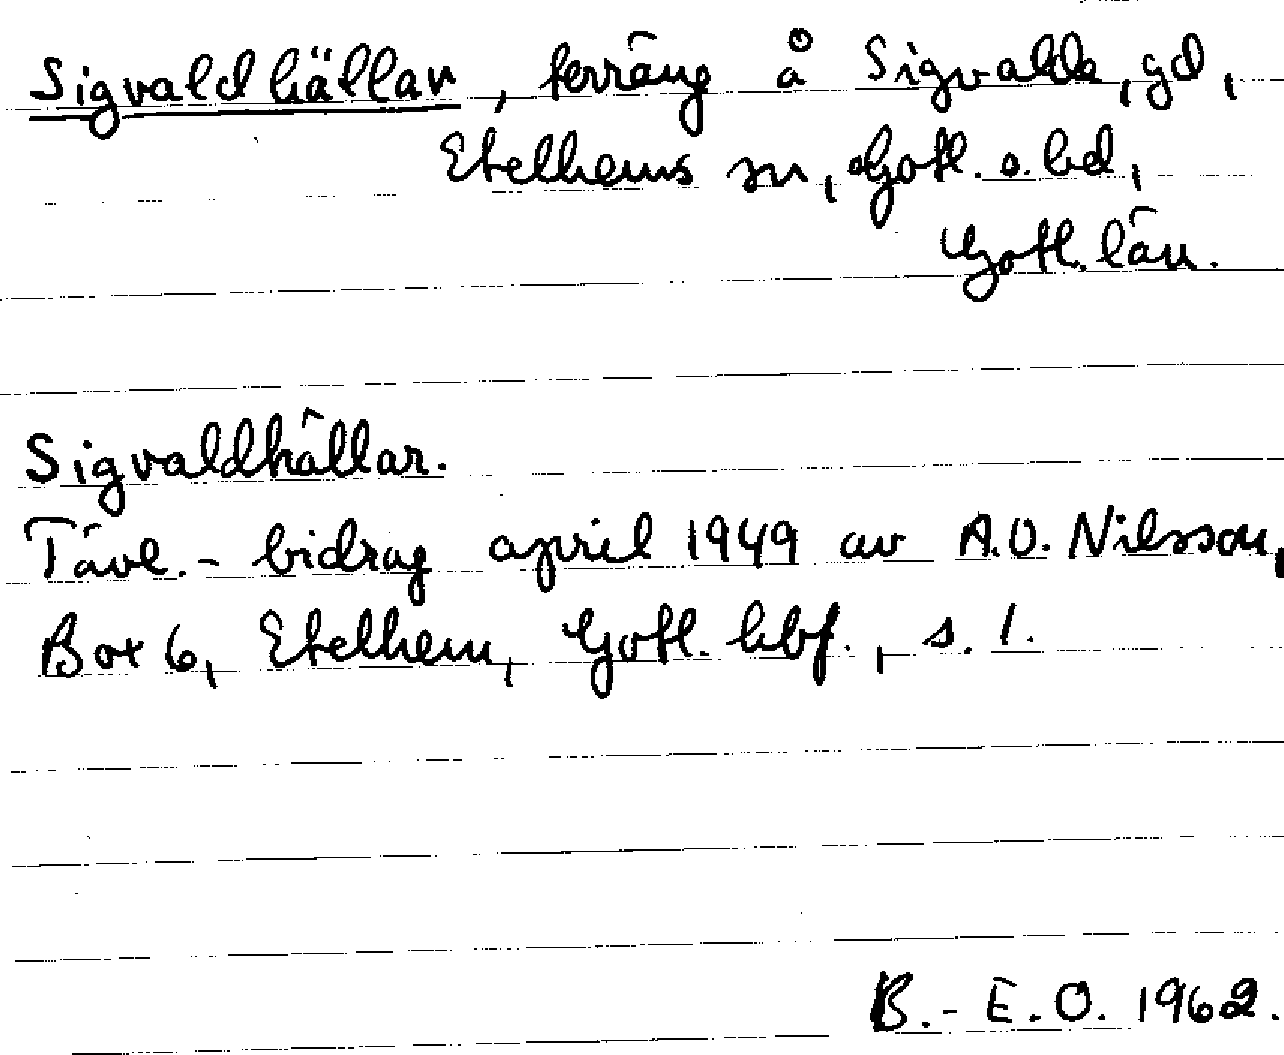 Sigvaldhällar, terräng å Sigvalde, gd,
Etelhems sn, Gotl. s. hd,
Gotl. län.
Sigvaldhällar.
Tävl.- bidrag april 1949 av A.O. Nilsson,
Box 6, Etelhem, Gotl. hbf., s. 1.
B.- E.O. 1962.